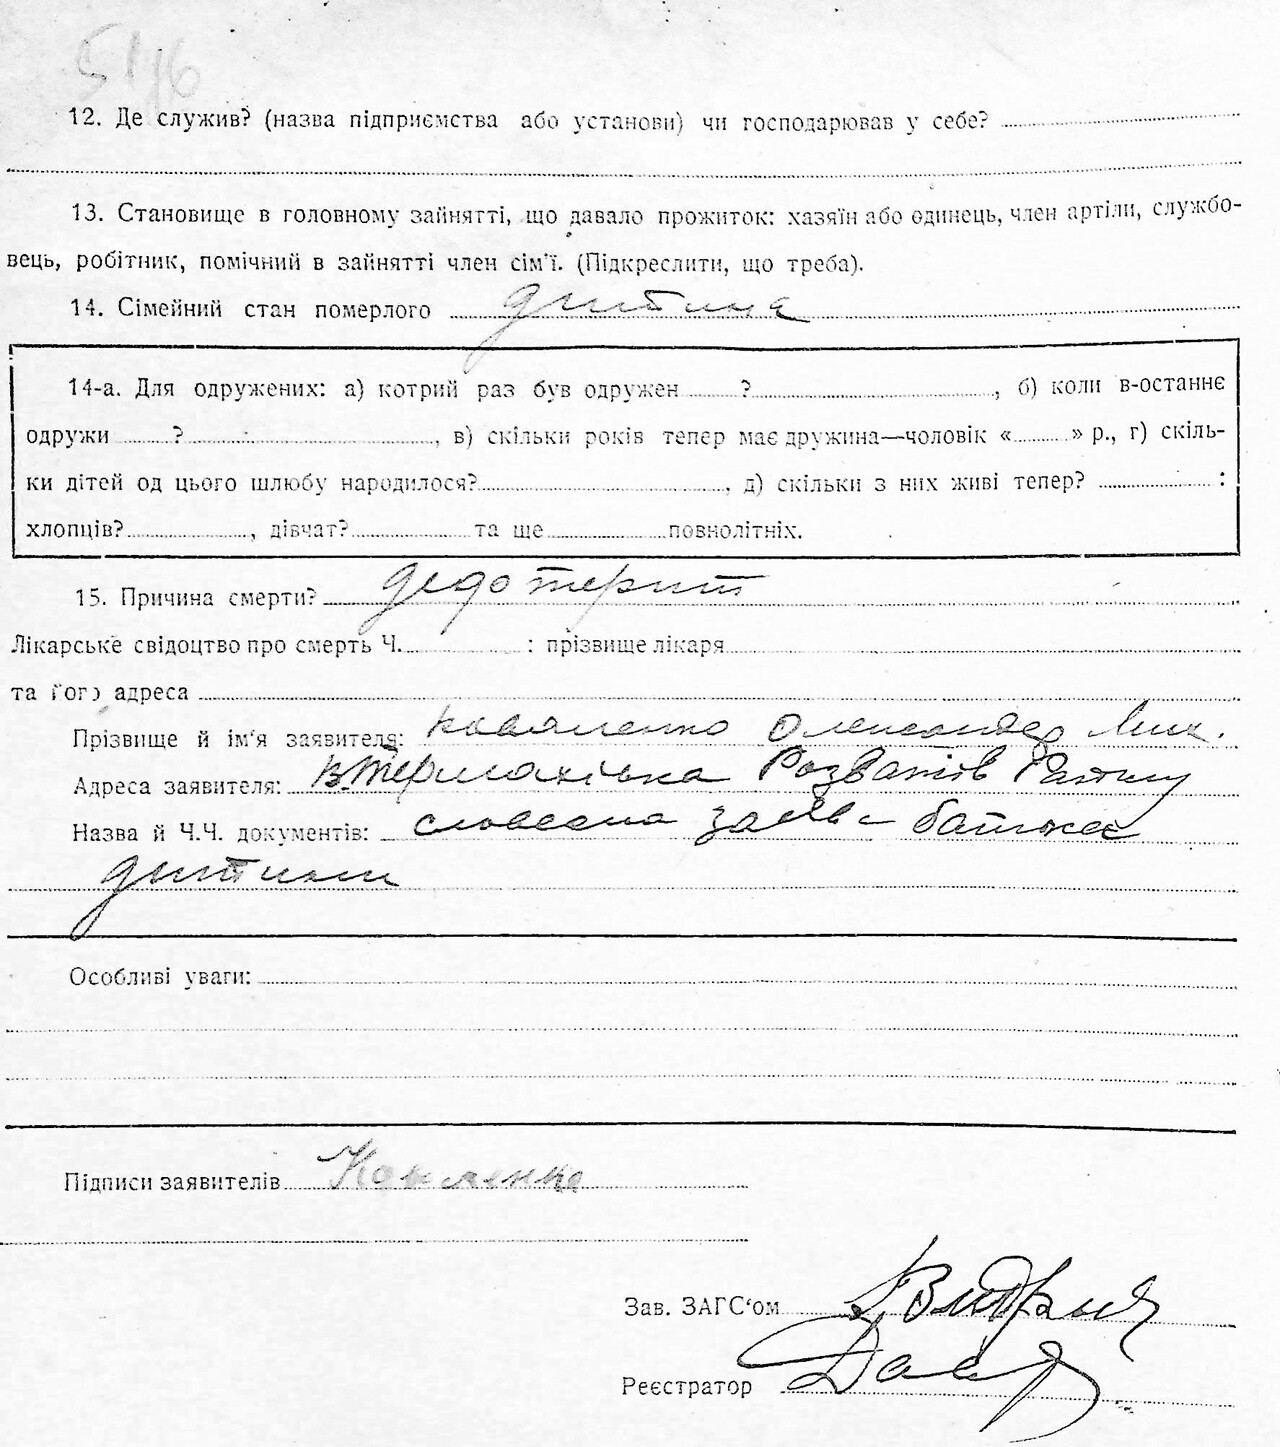 51/6
12. Де служив? (назва підприємства або установи) чи господарював у себе?
13. Становище в головному зайнятті, що давало прожиток: хазяїн або одинець, член артіли, службо-
вець, робітник, помічний в зайнятті член сім'ї. (Підкреслити, що треба).
14. Сімейний стан померлого дитина
14-а. Для одружених: а) котрий раз був одружен ? , б) коли в-останнє
одружи ? , в) скільки років тепер має дружина—чоловік « » р., г) скіль-
ки дітей од цього шлюбу народилося? , д) скільки з них живі тепер? :
хлопців? , дівчат? та ще повнолітніх.
15. Причина смерти?
Лікарське свідоцтво про смерть Ч. : прізвище лікаря
та його адреса
Прізвище й ім'я заявителя: Коваленко Олександер Мих.
Адреса заявителя: Термахівка Розважів
Назва й Ч.Ч. документів: словесна заява батька
дитини
Особливі уваги:
Підписи заявителів Коваленко
Зав. ЗАГС'ом
Реєстратор